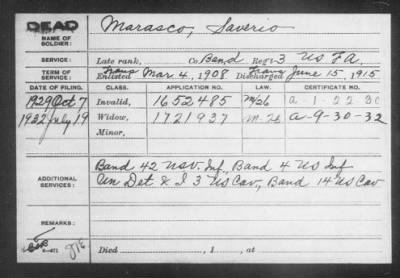 DEAD
NAME OF SOLDIER: Marasco, Saverio
SERVICE: Late rank, Co Band, Reg't 3 US FA,
TERM OF SERVICE: Enlisted Trans Mar 4, 1908 Discharged Trans June 15, 1915
DATE OF FILING. CLASS. APPLICATION NO. LAW. CERTIFICATE NO.
1929 Oct 7 Invalid, 1652485 M/26 a-1-22-30
1932 July 19 Widow, 1721937 M. 26 a-9-30-32
Minor,
ADDITIONAL SERVICES: Band 42 USV. Inf, Band 4 US Inf
Un Det & I 3 US Cav, Band 14 US Cav
REMARKS:
Died , 1 , at